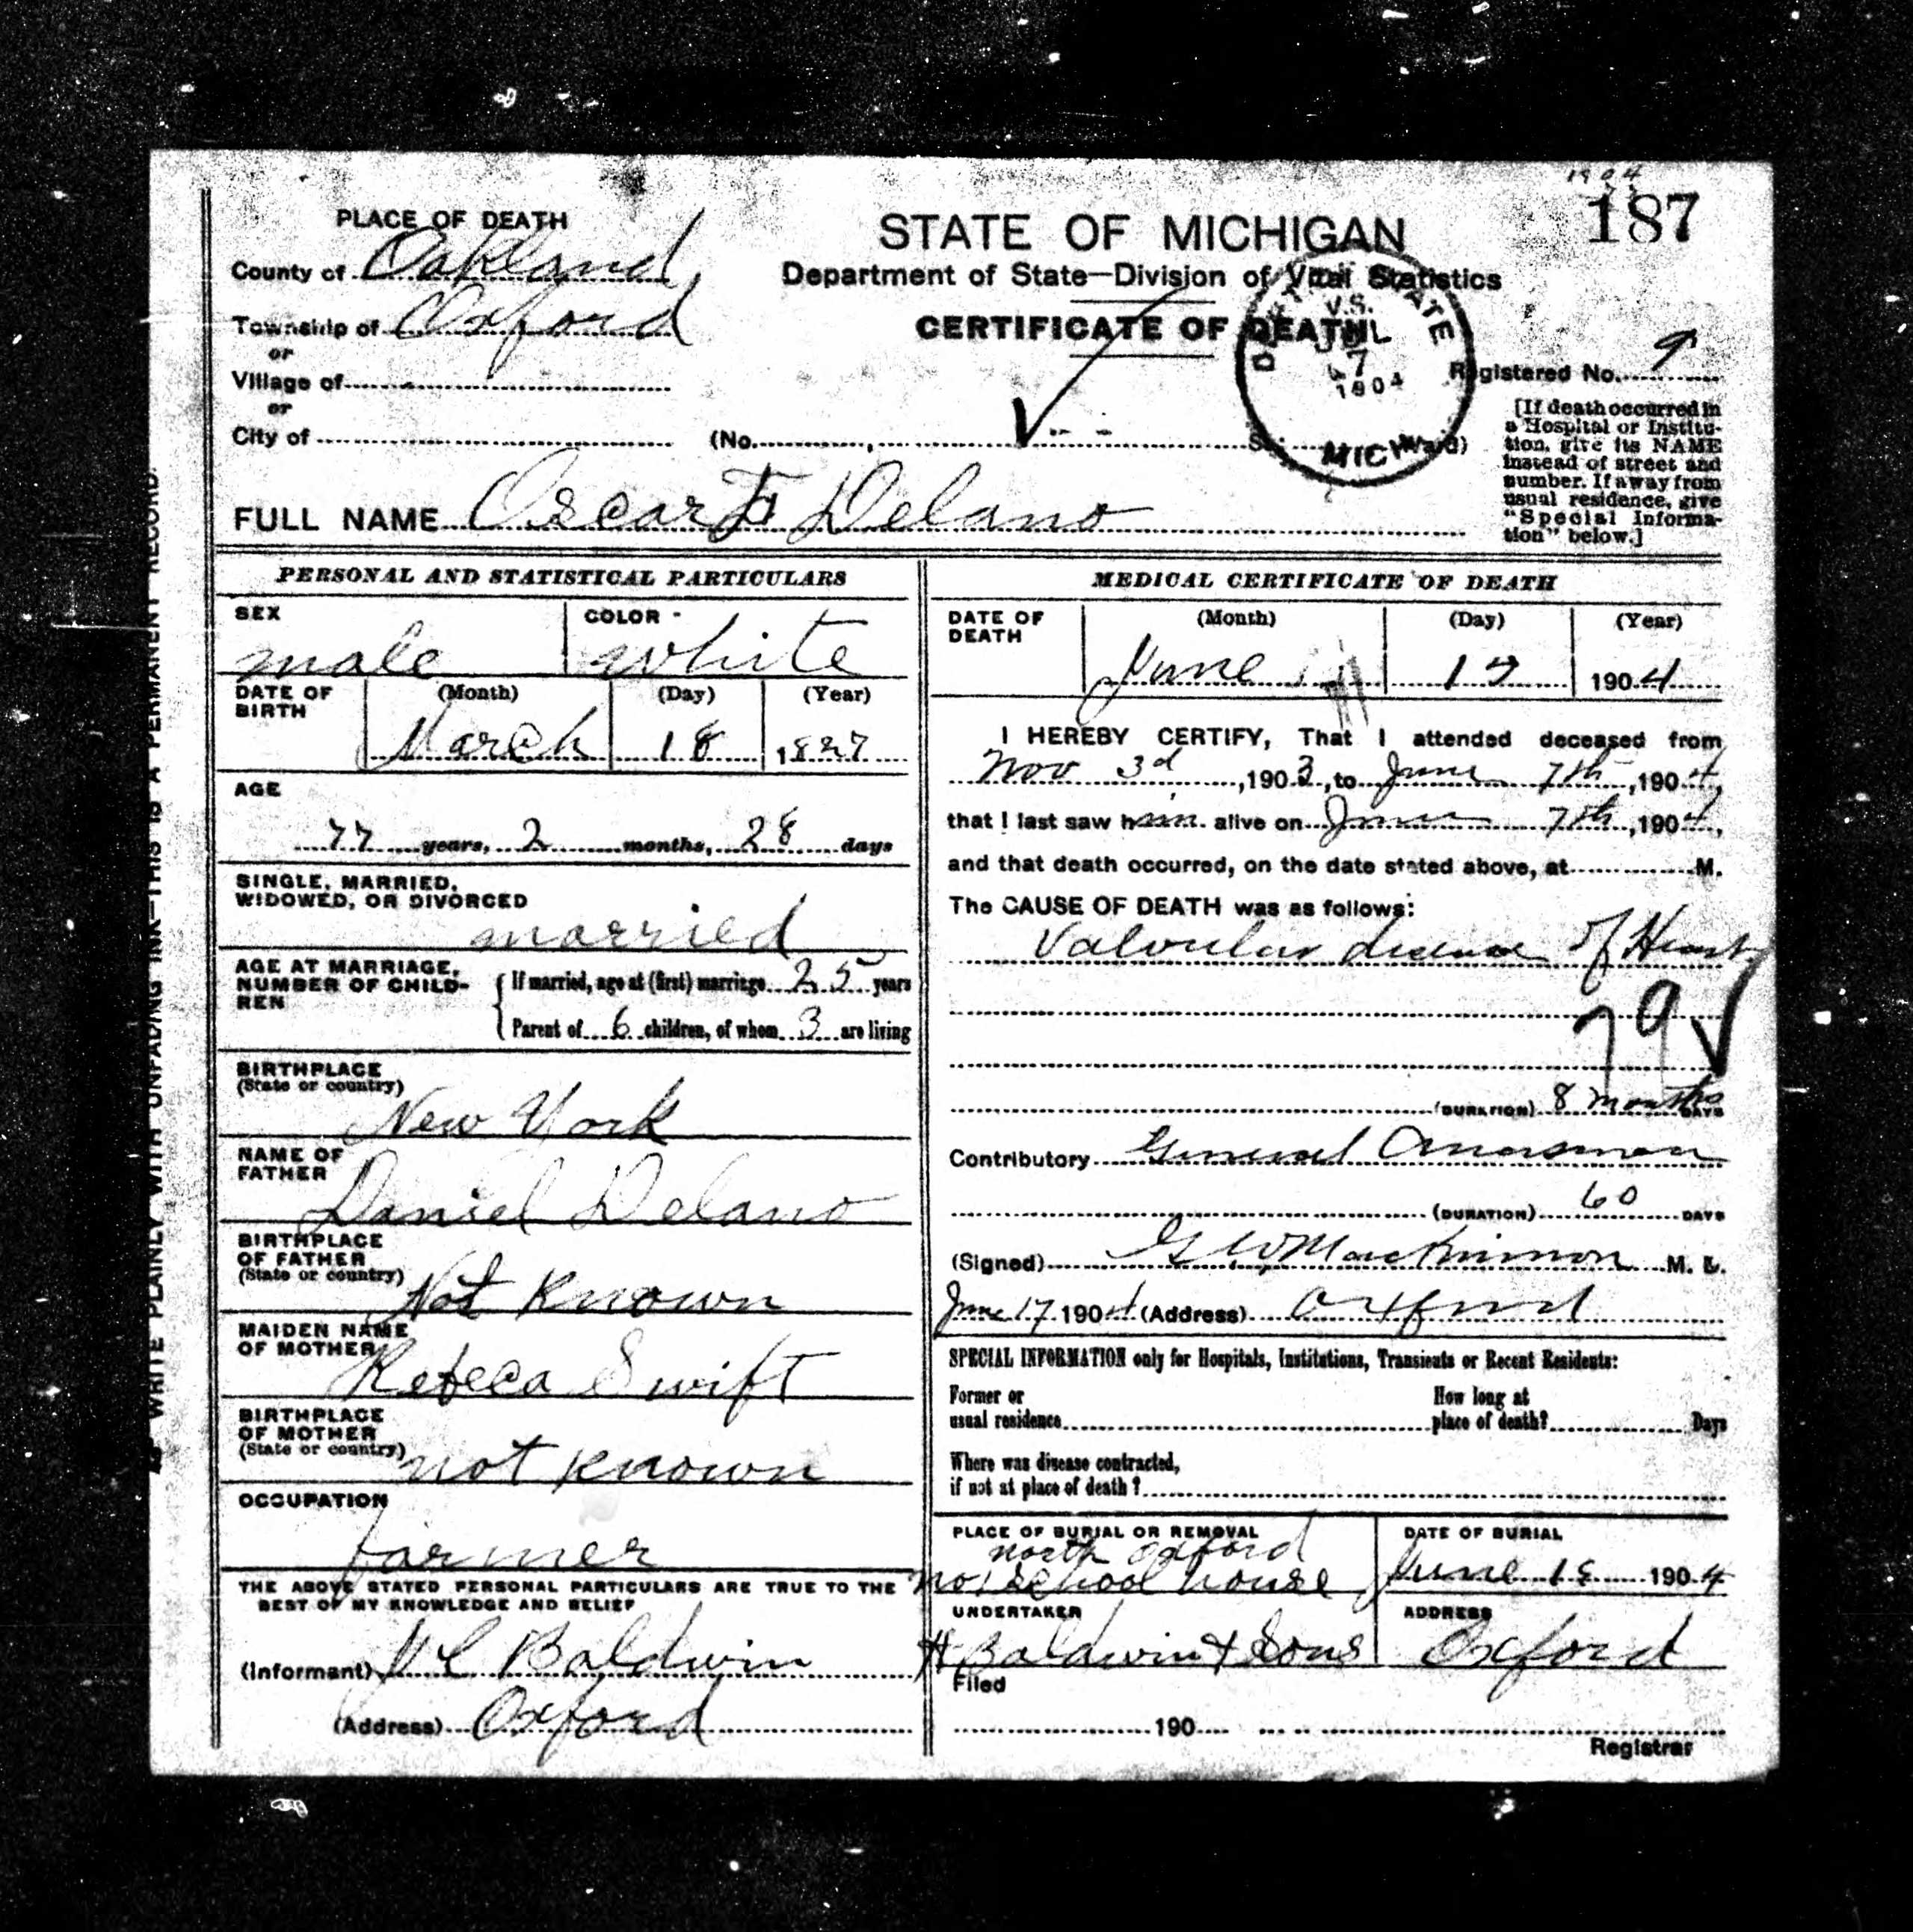 1904
187
PLACE OF DEATH
County of Oakland
Township of Oxford
or
Village of
or
City of
STATE OF MICHIGAN
Department of State—Division of Vital Statistics
CERTIFICATE OF DEATH
V.S.
7
1904
MICH
Registered No. 9
(No. , St.; Ward)
[If death occurred in
a Hospital or Institu-
tion, give its NAME
instead of street and
number. If away from
usual residence, give
"Special Informa-
tion" below.]
FULL NAME Oscar F Delano
WRITE PLAINLY WITH UNFADING INK—THIS IS A PERMANENT RECORD.
PERSONAL AND STATISTICAL PARTICULARS
SEX male COLOR white
DATE OF BIRTH (Month) (Day) (Year)
March 18 1827
AGE
77 years, 2 months, 28 days
SINGLE, MARRIED,
WIDOWED, OR DIVORCED
married
AGE AT MARRIAGE,
NUMBER OF CHILD-
REN
If married, age at (first) marriage 25 years
Parent of 6 children, of whom 3 are living
BIRTHPLACE
(State or country)
New York
NAME OF
FATHER
Daniel Delano
BIRTHPLACE
OF FATHER
(State or country)
Not Known
MAIDEN NAME
OF MOTHER
Rebeca Swift
BIRTHPLACE
OF MOTHER
(State or country)
not known
OCCUPATION
farmer
THE ABOVE STATED PERSONAL PARTICULARS ARE TRUE TO THE
BEST OF MY KNOWLEDGE AND BELIEF
(Informant) Baldwin
(Address) Oxford
MEDICAL CERTIFICATE OF DEATH
DATE OF DEATH (Month) (Day) (Year)
June 1904
I HEREBY CERTIFY, That I attended deceased from
Nov 3d, 1903, to June 7th, 1904,
that I last saw him alive on June 7th, 1904,
and that death occurred, on the date stated above, at M.
The CAUSE OF DEATH was as follows:
Valvular disease of Heart
79
(DURATION) 8 months DAYS
Contributory General
(DURATION) 60 DAYS
(Signed) G W MacKinnon M. D.
June 17 1904 (Address) Oxford
SPECIAL INFORMATION only for Hospitals, Institutions, Transients or Recent Residents:
Former or
usual residence
How long at
place of death? Days
Where was disease contracted,
if not at place of death?
PLACE OF BURIAL OR REMOVAL
north oxford
no 1 School house
DATE OF BURIAL
June 18 1904
UNDERTAKER
H Baldwin & Sons
ADDRESS
Oxford
Filed
190
Registrar